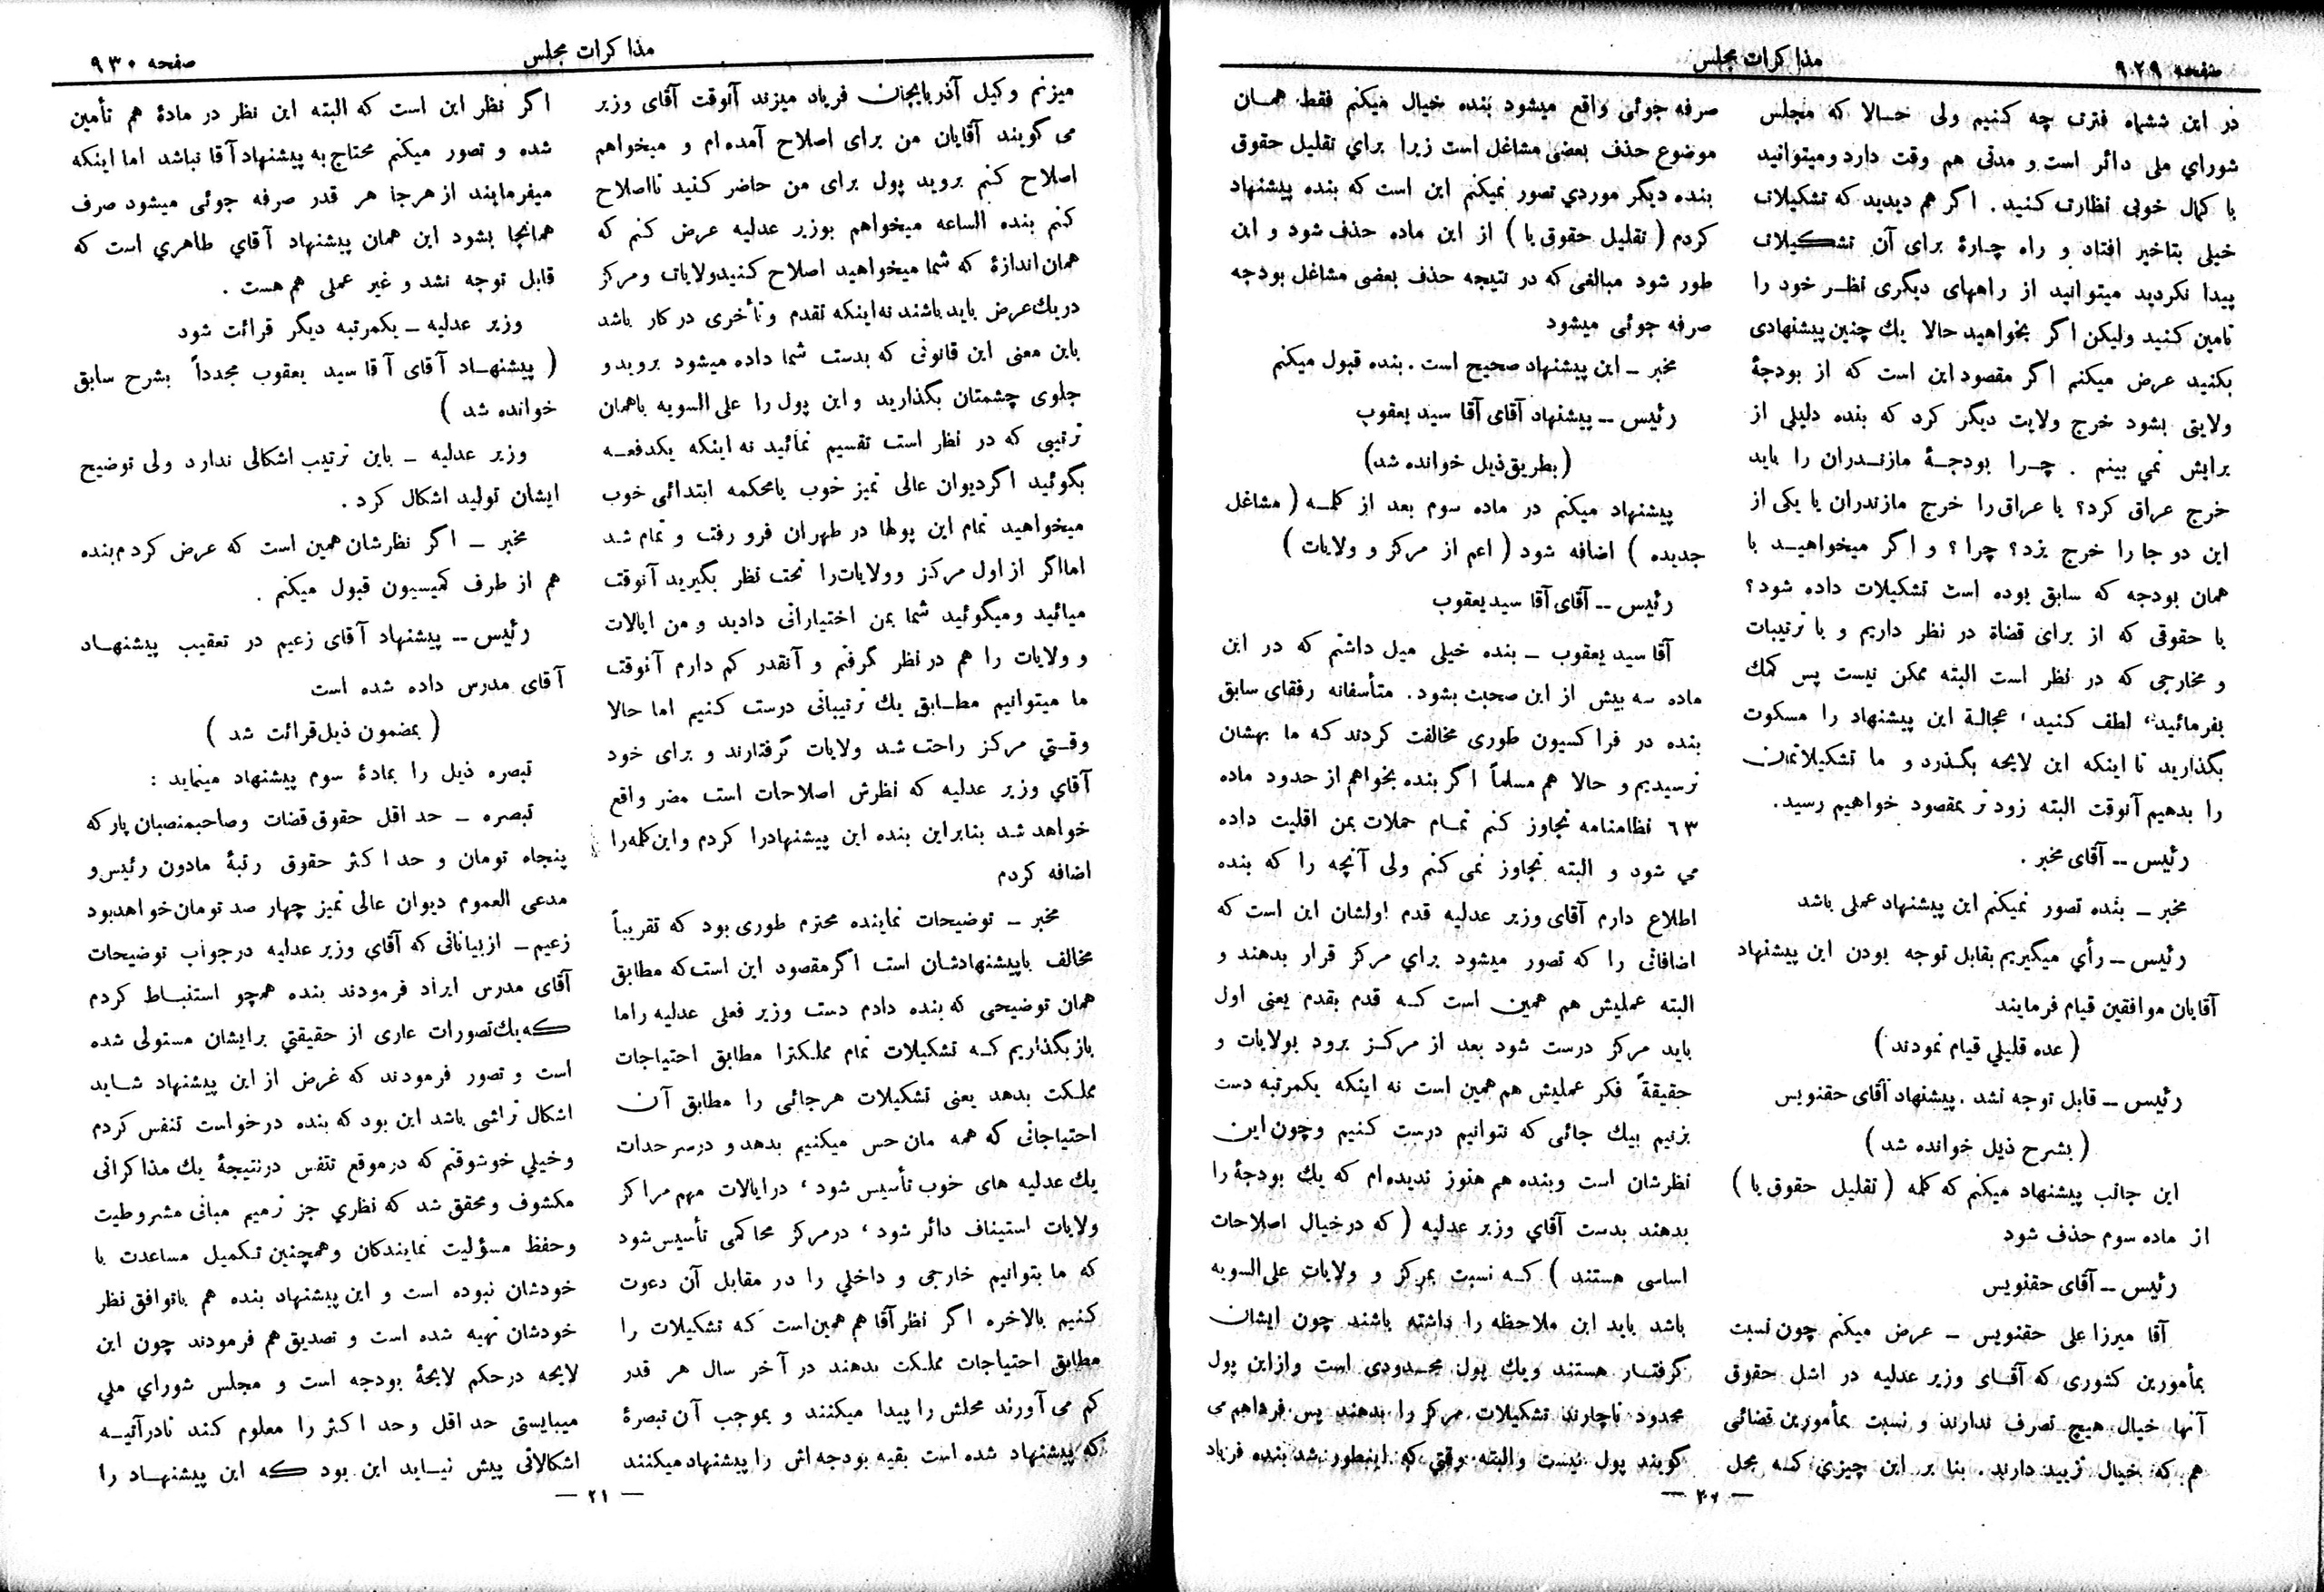 صفحه ۹۲۹
مذاکرات مجلس
در این ششماه فترت چه کنیم ولی حالا که مجلس
شورای ملی دائر است و مدتی هم وقت دارد و میتوانید
با کمال خوبی نظارت کنید. اگر هم دیدید که تشکیلات
خیلی بتاخیر افتاد و راه چارهٔ برای آن تشکیلات
پیدا نکردید میتوانید از راههای دیگری نظر خود را
تامین کنید ولیکن اگر بخواهید حالا یك چنین پیشنهادی
بکنید عرض میکنم اگر مقصود این است که از بودجهٔ
ولایتی بشود خرج ولایت دیگر کرد که بنده دلیلی از
برایش نمي بینم . چرا بودجهٔ مازندران را باید
خرج عراق کرد؟ یا عراق را خرج مازندران یا یکی از
این دو جا را خرج یزد؟ چرا؟ و اگر میخواهید با
همان بودجه که سابق بوده است تشکیلات داده شود؟
با حقوقی که از برای قضاة در نظر داریم و با ترتیبات
و مخارجی که در نظر است البته ممکن نیست پس کمك
بفرمائید، لطف کنید، عجالة این پیشنهاد را مسکوت
بگذارید تا اینکه این لایحه بگذرد و ما تشکیلاتمان
را بدهیم آنوقت البته زود تر بمقصود خواهیم رسید.
رئیس ــ آقای مخبر .
مخبر ــ بنده تصور نمیکنم این پیشنهاد عملی باشد
رئیس ــ رأي میگیریم بقابل توجه بودن این پیشنهاد
آقایان موافقین قیام فرمایند
( عده قلیلي قیام نمودند )
رئیس ــ قابل توجه نشد . پیشنهاد آقای حقنویس
( بشرح ذیل خوانده شد )
این جانب پیشنهاد میکنم که کلمه ( تقلیل حقوق یا )
از ماده سوم حذف شود
رئیس ــ آقای حقنویس
آقا میرزا علی حقنویس ــ عرض میکنم چون نسبت
بمأمورین کشوری که آقای وزیر عدلیه در اشل حقوق
آنها خیال هیچ تصرف ندارند و نسبت بمأمورین قضائی
هم که خیال تزیید دارند. بنا بر این چیزی که محل
صرفه جوئی واقع میشود بنده خیال میکنم فقط همان
موضوع حذف بعضی مشاغل است زیرا برای تقلیل حقوق
بنده دیگر موردي تصور نمیکنم این است که بنده پیشنهاد
کردم ( تقلیل حقوق یا ) از این ماده حذف شود و این
طور شود مبالغی که در نتیجه حذف بعضی مشاغل بودجه
صرفه جوئی میشود
مخبر ــ این پیشنهاد صحیح است . بنده قبول میکنم
رئیس ــ پیشنهاد آقای آقا سید یعقوب
(بطریق ذیل خوانده شد)
پیشنهاد میکنم در ماده سوم بعد از کلمه ( مشاغل
جدیده ) اضافه شود ( اعم از مرکز و ولایات )
رئیس ــ آقای آقا سید یعقوب
آقا سید یعقوب ــ بنده خیلی میل داشتم که در این
ماده سه بیش از این صحبت بشود. متأسفانه رفقای سابق
بنده در فراکسیون طوری مخالفت کردند که ما بهشان
نرسیدیم و حالا هم مسلماً اگر بنده بخواهم از حدود ماده
۶۳ نظامنامه تجاوز کنم تمام حملات بمن اقلیت داده
می شود و البته تجاوز نمی کنم ولی آنچه را که بنده
اطلاع دارم آقای وزیر عدلیه قدم اولشان این است که
اضافاتی را که تصور میشود برای مرکز قرار بدهند و
البته عملیش هم همین است که قدم بقدم یعنی اول
باید مرکز درست شود بعد از مرکز برود بولایات و
حقیقةً فکر عملیش هم همین است نه اینکه یکمرتبه دست
بزنیم بیك جائی که نتوانیم درست کنیم و چون این
نظرشان است و بنده هم هنوز ندیده ام که یك بودجهٔ را
بدهند بدست آقای وزیر عدلیه ( که در خیال اصلاحات
اساسی هستند ) که نسبت بمرکز و ولایات علی السویه
باشد باید این ملاحظه را داشته باشند چون ایشان
گرفتار هستند و یك پول محدودی است و از این پول
محدود ناچارند تشکیلات مرکز را بدهند پس فردا هم می
گویند پول نیست والبته وقتی که اینطور شد بنده فریاد
ــ ۲۰ ــ
مذاکرات مجلس
صفحه ۹۳۰
میزنم وکیل آذربایجان فریاد میزند آنوقت آقای وزیر
می گویند آقایان من برای اصلاح آمده ام و میخواهم
اصلاح کنم بروید پول برای من حاضر کنید تا اصلاح
کنم بنده الساعه میخواهم بوزیر عدلیه عرض کنم که
همان اندازهٔ که شما میخواهید اصلاح کنید ولایات و مرکز
در یك عرض باید باشند نه اینکه تقدم و تأخری در کار باشد
باین معنی این قانونی که بدست شما داده میشود بروید و
جلوی چشمتان بگذارید و این پول را علی السویه باهمان
ترتیبی که در نظر است تقسیم نمائید نه اینکه یکدفعه
بگوئید اگر دیوان عالی تمیز خوب یا محکمه ابتدائی خوب
میخواهید تمام این پولها در طهران فرو رفت و تمام شد
اما اگر از اول مرکز و ولایات را تحت نظر بگیرید آنوقت
میائید و میگوئید شما بمن اختیاراتی دادید و من ایالات
و ولایات را هم در نظر گرفتم و آنقدر کم دارم آنوقت
ما میتوانیم مطابق یك ترتیباتی درست کنیم اما حالا
وقتي مرکز راحت شد ولایات گرفتارند و برای خود
آقای وزیر عدلیه که نظرش اصلاحات است مضر واقع
خواهد شد بنابراین بنده این پیشنهاد را کردم و این کلمه را
اضافه کردم
مخبر ــ توضیحات نماینده محترم طوری بود که تقریباً
مخالف با پیشنهادشان است اگر مقصود این است که مطابق
همان توضیحی که بنده دادم دست وزیر فعلی عدلیه را ما
باز بگذاریم که تشکیلات تمام مملکت را مطابق احتیاجات
مملکت بدهد یعنی تشکیلات هر جائی را مطابق آن
احتیاجاتی که همه مان حس میکنیم بدهد و در سرحدات
یك عدلیه های خوب تأسیس شود، در ایالات مهم مراکز
ولایات استیناف دائر شود، در مرکز محاکمی تأسیس شود
که ما بتوانیم خارجی و داخلي را در مقابل آن دعوت
کنیم بالاخره اگر نظر آقا هم همین است که تشکیلات را
مطابق احتیاجات مملکت بدهند در آخر سال هر قدر
کم می آورند محلش را پیدا میکنند و بموجب آن تبصرهٔ
که پیشنهاد شده است بقیه بودجه اش را پیشنهاد میکنند
اگر نظر این است که البته این نظر در مادهٔ هم تأمین
شده و تصور میکنم محتاج به پیشنهاد آقا نباشد اما اینکه
میفرمایند از هر جا هر قدر صرفه جوئی میشود صرف
همانجا بشود این همان پیشنهاد آقای طاهري است که
قابل توجه نشد و غیر عملی هم هست .
وزیر عدلیه ــ یکمرتبه دیگر قرائت شود
( پیشنهاد آقای آقا سید یعقوب مجدداً بشرح سابق
خوانده شد )
وزیر عدلیه ــ باین ترتیب اشکالی ندارد ولی توضیح
ایشان تولید اشکال کرد .
مخبر ــ اگر نظرشان همین است که عرض کردم بنده
هم از طرف کمیسیون قبول میکنم .
رئیس ــ پیشنهاد آقای زعیم در تعقیب پیشنهاد
آقای مدرس داده شده است
( بمضمون ذیل قرائت شد )
تبصره ذیل را بمادهٔ سوم پیشنهاد مینماید :
تبصره ــ حد اقل حقوق قضات و صاحبمنصبان پارکه
پنجاه تومان و حد اکثر حقوق رتبهٔ مادون رئیس و
مدعی العموم دیوان عالی تمیز چهار صد تومان خواهد بود
زعیم ــ از بیاناتی که آقای وزیر عدلیه در جواب توضیحات
آقای مدرس ایراد فرمودند بنده همچو استنباط کردم
که یك تصورات عاری از حقیقتي برایشان مستولی شده
است و تصور فرمودند که غرض از این پیشنهاد شاید
اشکال تراشی باشد این بود که بنده درخواست تنفس کردم
و خیلي خوشوقتم که در موقع تنفس در نتیجهٔ یك مذاکراتی
مکشوف و محقق شد که نظري جز ترمیم مبانی مشروطیت
و حفظ مسؤلیت نمایندگان و همچنین تکمیل مساعدت با
خودشان نبوده است و این پیشنهاد بنده هم با توافق نظر
خودشان تهیه شده است و تصدیق هم فرمودند چون این
لایحه در حکم لایحهٔ بودجه است و مجلس شورای ملي
میبایستی حد اقل وحد اکثر را معلوم کند تا در آتیه
اشکالاتی پیش نیاید این بود که این پیشنهاد را
ــ ۲۱ ــ